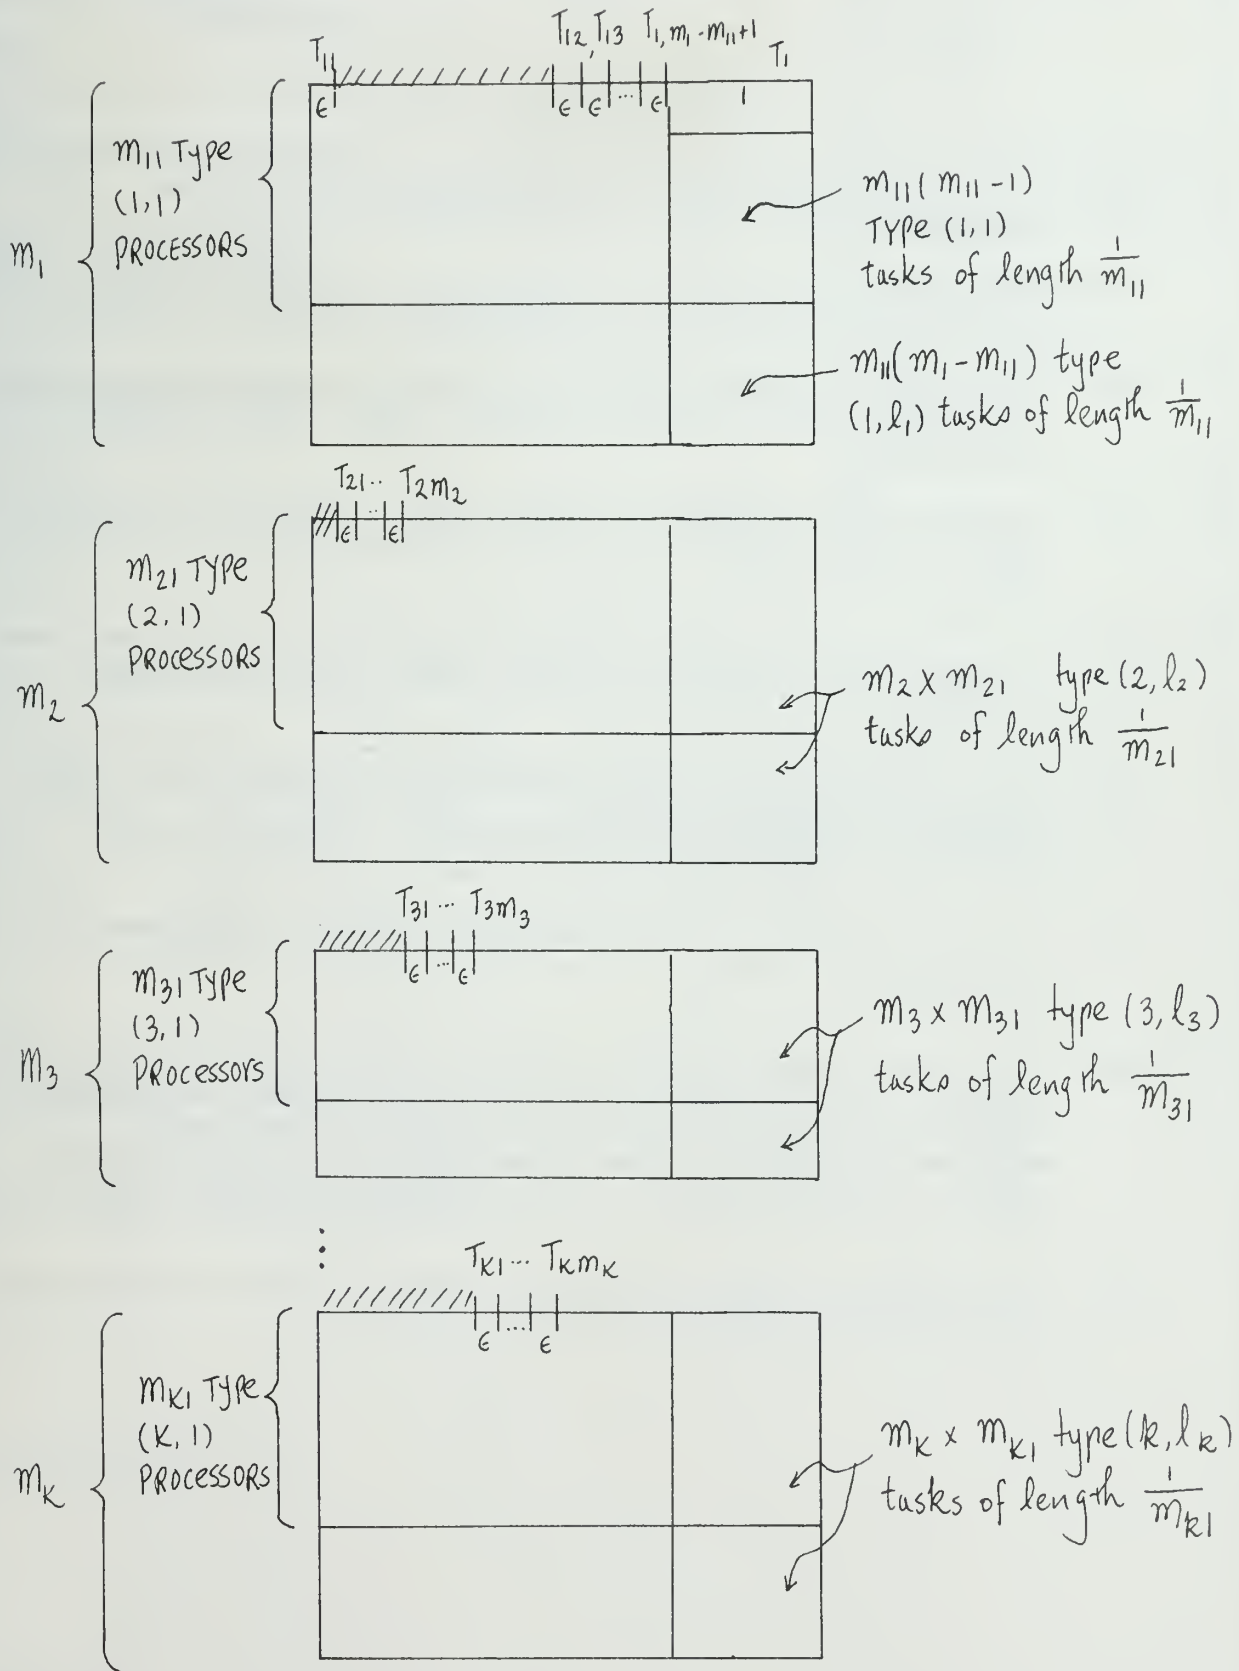 T₁₁ T₁₂, T₁₃ T₁, m₁ - m₁₁+1 T₁
ϵ ϵ ϵ ... ϵ 1
m₁
m₁₁ Type
(1,1)
PROCESSORS
m₁₁(m₁₁ -1)
TYPE (1,1)
tasks of length 1/m₁₁
m₁₁(m₁ - m₁₁) type
(1, l₁) tasks of length 1/m₁₁
T₂₁ .. T₂m₂
ϵ .. ϵ
m₂
m₂₁ TYPE
(2,1)
PROCESSORS
m₂ x m₂₁ type (2, l₂)
tasks of length 1/m₂₁
T₃₁ ... T₃m₃
ϵ ... ϵ
m₃
m₃₁ TYPE
(3,1)
PROCESSORS
m₃ x m₃₁ type (3, l₃)
tasks of length 1/m₃₁
⋮
Tₖ₁ ... Tₖmₖ
ϵ .... ϵ
mₖ
mₖ₁ TYPE
(K,1)
PROCESSORS
mₖ x mₖ₁ type (k, lₖ)
tasks of length 1/mₖ₁